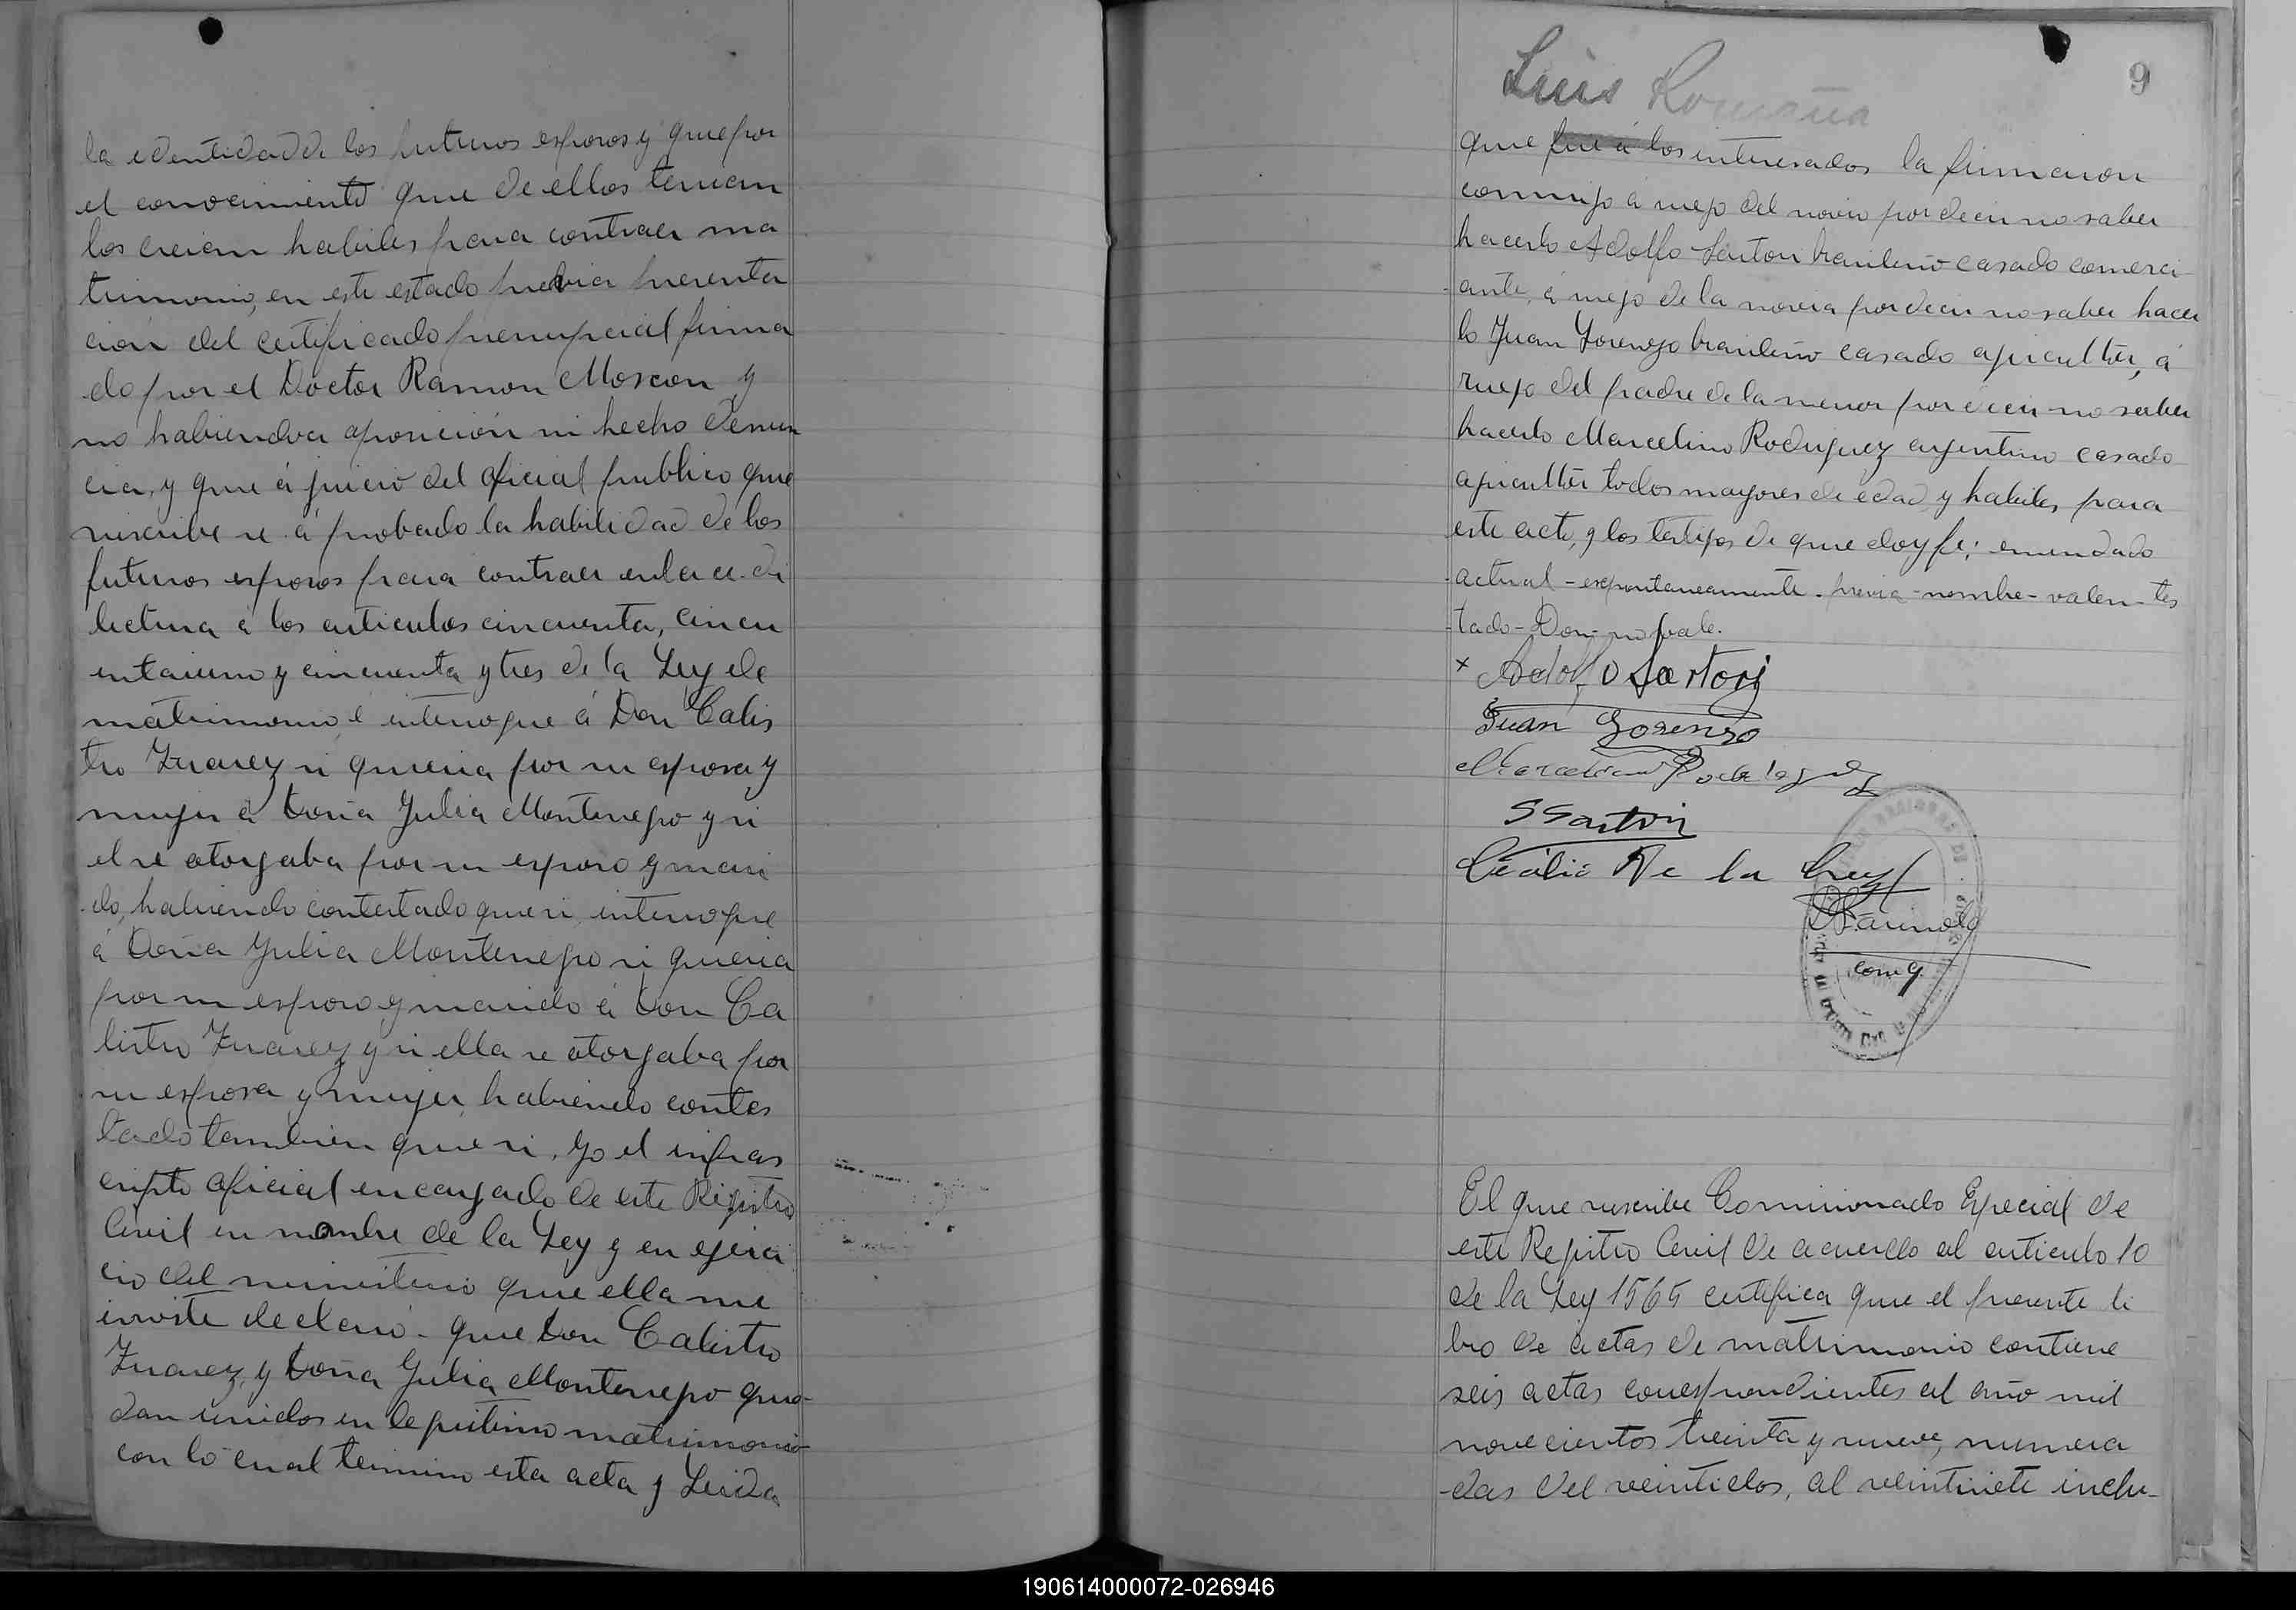 la identidad de los futuros esposos y que por
el conocimiento que de ellos tenian
los creian habiles para contraer ma
trimonio, en este estado previa presenta
cion del certificado prenupcial firma
do por el Doctor Ramon Moscon y
no habiendo oposición ni hecho denun
cia, y que á juicio del oficial publico que
suscribe se á probado la habilidad de los
futuros esposos para contraer enlace. di
lectura á los articulos cincuenta, cincu
entaiuno y cincuenta y tres de la Ley de
matrimonio, é interrogue á Don Calis
tro Zuarez si queria por su esposa y
mujer á Doña Julia Montenegro y si
el se otorgaba por su esposo y mari
do, habiendo contestado que si, interrogue
á Doña Julia Montenegro si queria
por su esposo y marido á Don Ca
listro Zuarez y si ella se otorgaba por
su esposa y mujer, habiendo contes
tado tambien que si. Yo el infras
cripto oficial encargado de este Registro
Civil en nombre de la Ley y en ejerci
cio del ministerio que ella me
inviste declaro - que Don Calistro
Zuarez, y Doña Julia Montenegro que-
dan unidos en legitimo matrimonio
con lo cual termino esta acta y Leida
Luis Romaña
9
que fue á los interesados la firmaron
conmigo á ruego del novio por decir no saber
hacerlo Adolfo Sartori brasileño casado comerci
ante, á ruego de la novia por decir no saber hacer
lo Juan Lorenzo brasileño casado agricultor, á
ruego del padre de la menor por decir no saber
hacerlo Marcelino Rodriguez argentino casado
agricultor todos mayores de edad y habiles para
este acto, y los testigos de que doy fe; enmendado
actual - espontaneamente - previa - nombre - valen - tes
tado - Don - no vale.
x Adolfo Sartori
Juan Lorenzo
Marcelino Rodriguez
S Sartori
Cecilio De la Cruz
com g.
El que suscribe Comisionado Especial de
este Registro Civil de acuerdo al articulo 10
de la Ley 1565 certifica que el presente li
bro de actas de matrimonio contiene
seis actas correspondientes al año mil
novecientos treinta y nueve, numera
-das del veintidos, al veintisiete inclu-
190614000072-026946